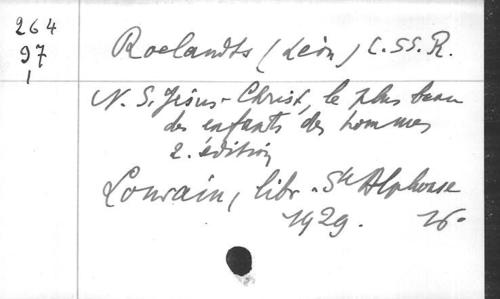 264
97
1
Roelandts (Léon) C.SS.R.
N. S. Jésus-Christ, le plus beau
des enfants des hommes
2. édition
Louvain, libr. St Alphonse
1929. 16°